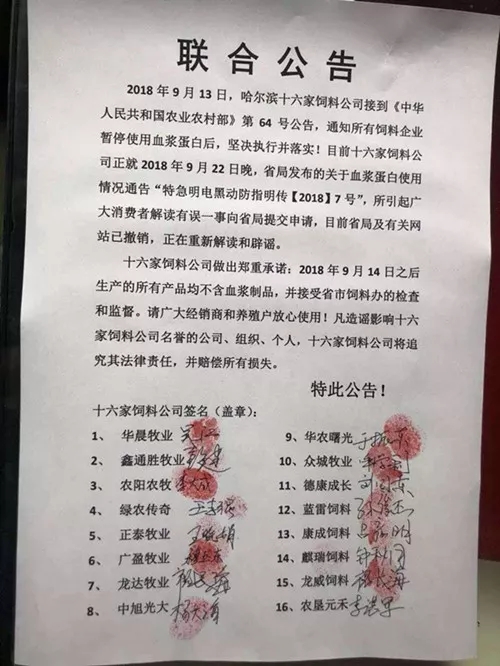 联合公告
2018年9月13日，哈尔滨十六家饲料公司接到《中华
人民共和国农业农村部》第 64 号公告，通知所有饲料企业
暂停使用血浆蛋白后，坚决执行并落实！目前十六家饲料公
司正就 2018 年 9 月 22 日晚，省局发布的关于血浆蛋白使用
情况通告“特急明电黑动防指明传【2018】7号”，所引起广
大消费者解读有误一事向省局提交申请，目前省局及有关网
站已撤销，正在重新解读和辟谣。
十六家饲料公司做出郑重承诺：2018 年 9 月 14 日之后
生产的所有产品均不含血浆制品，并接受省市饲料办的检查
和监督。请广大经销商和养殖户放心使用！凡造谣影响十六
家饲料公司名誉的公司、组织、个人，十六家饲料公司将追
究其法律责任，并赔偿所有损失。
特此公告！
十六家饲料公司签名（盖章）：
1、 华晨牧业
2、 鑫通胜牧业
3、 农阳农牧
4、 绿农传奇
5、 正泰牧业
6、 广盈牧业
7、 龙达牧业
8、 中旭光大
9、 华农曙光
10、 众城牧业
11、 德康成长
12、 蓝雷饲料
13、 康成饲料
14、 麒瑞饲料
15、 龙威饲料
16、 农垦元禾